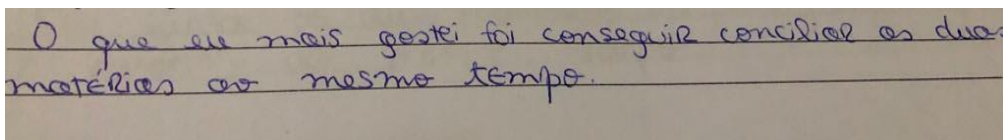 O que eu mais gostei foi conseguir conciliar as duas
matérias ao mesmo tempo.